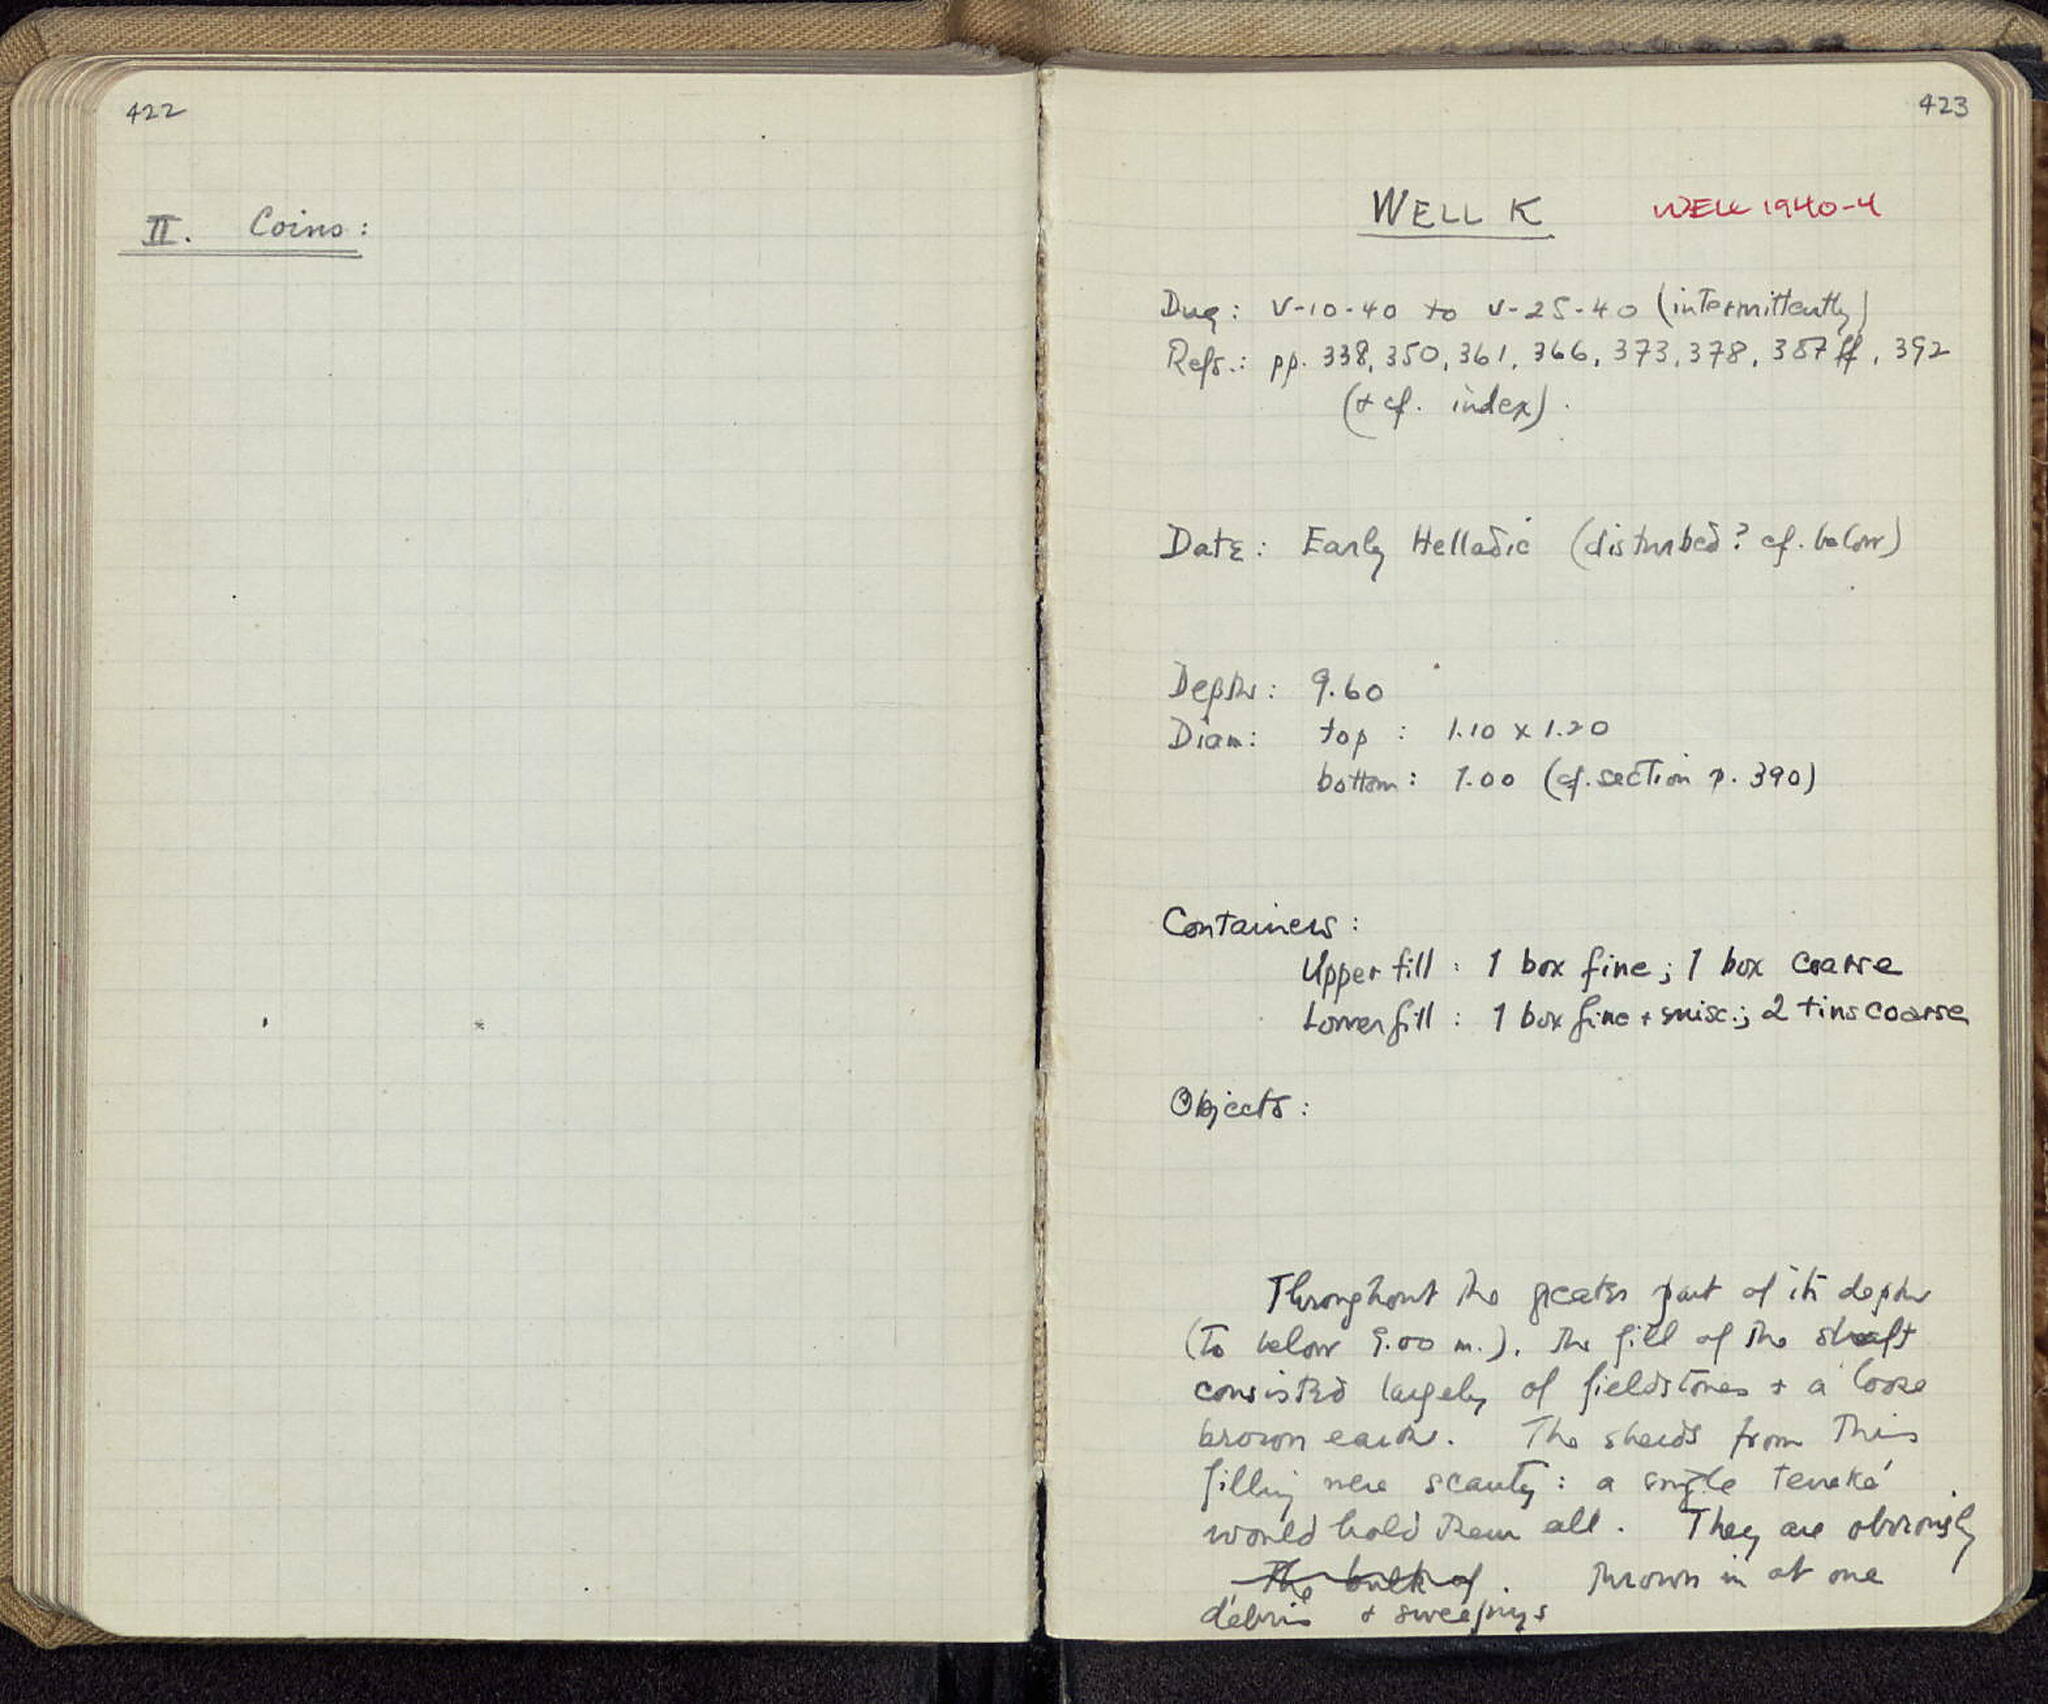 422
II. Coins:
423
WELL K WELL 1940-4
Dug: V-10-40 to V-25-40 (intermittently)
Refs.: pp. 338, 350, 361, 366, 373, 378, 387ff, 392
(+ cf. index).
Date: Early Helladic (disturbed? cf. below)
Depth: 9.60
Diam: top : 1.10 x 1.20
bottom: 1.00 (cf. section p. 390)
Containers:
Upper fill : 1 box fine; 1 box coarse
Lower fill : 1 box fine + misc.; 2 tins coarse
Objects:
Throughout the greater part of its depth
(to below 9.00 m.), the fill of the shaft
consisted largely of fieldstones + a loose
brown earth. The sherds from this
filling were scanty: a single tenaké
would hold them all. They are obviously
The bulk of. thrown in at one
débris + sweepings